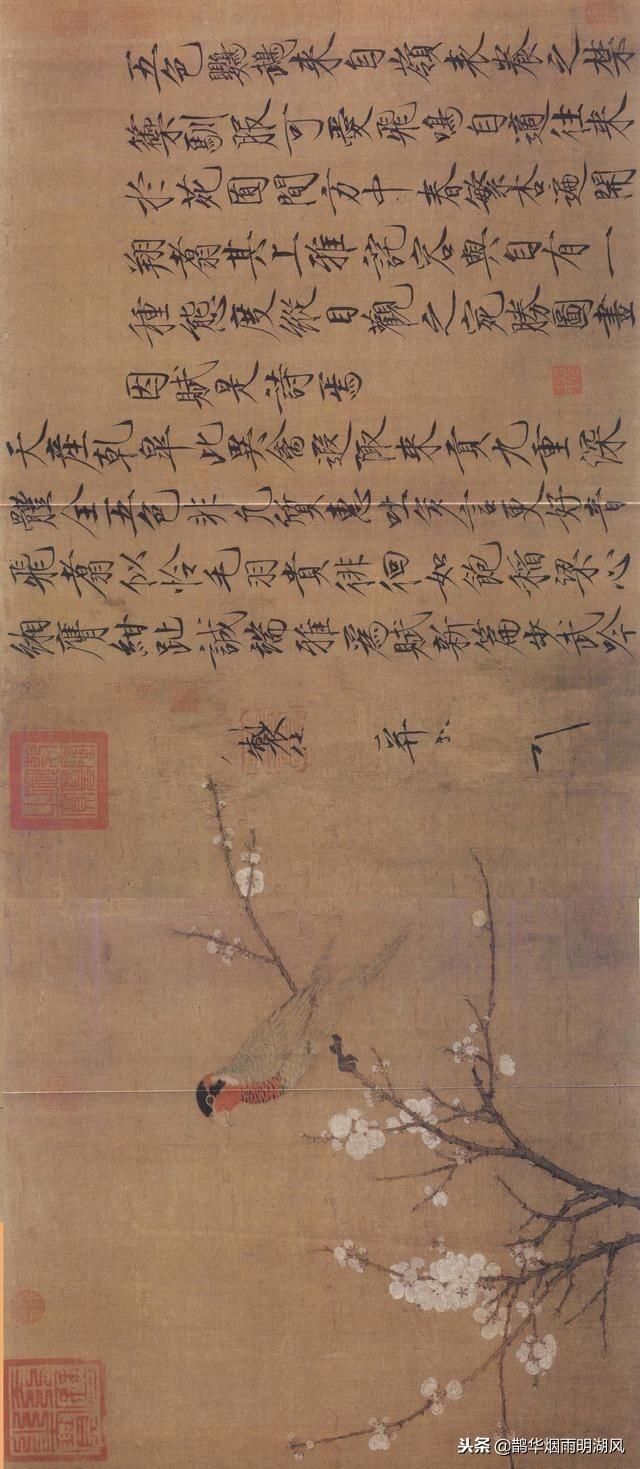 五色鸚鵡來自嶺表養之禁
籞馴服可愛飛鳴自適往來
於苑囿間方中春繁杏遍開
翔翥其上雅詫容與自有一
種態度縱目觀之宛勝圖畫
因賦是詩焉
天產乾皐此異禽遐陬來貢九重深
體全五色非凡質惠吐多言更好音
飛翥似怜毛羽貴徘徊如飽稻粱心
緗膺紺趾誠端雅爲賦新篇步武吟
製 并
头条 @鹊华烟雨明湖风